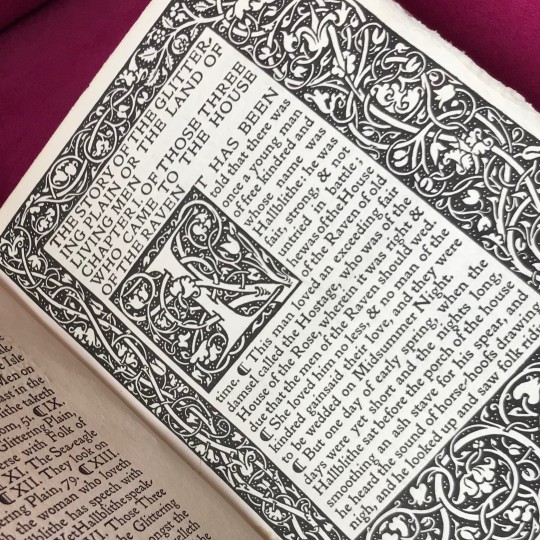 e Isle
en on
lass in the
lithe taketh
rom. 51. ¶IX.
Glittering Plain,
erse with Folk of
XI. The Sea-eagle
¶XII. They look on
ring Plain. 79. ¶XIII.
h the woman who loveth
lblithe has speech with
Yet Hallblithe speak-
II. Those Three
the Glittering
ongst the
elleth
the
THE STORY OF THE GLITTER-
ING PLAIN OR THE LAND OF
LIVING MEN.
CHAPTER I. OF THOSE THREE
WHO CAME TO THE HOUSE
OF THE RAVEN
IT HAS BEEN
told that there was
once a young man
of free kindred and
whose name was
Hallblithe: he was
fair, strong, & not
untried in battle;
he was of the House
of the Raven of old
time. ¶This man loved an exceeding fair
damsel called the Hostage, who was of the
House of the Rose, wherein it was right &
due that the men of the Raven should wed.
¶She loved him no less, & no man of the
kindred gainsaid their love, and they were
to be wedded on Midsummer Night.
¶But one day of early spring, when the
days were yet short and the nights long,
Hallblithe sat before the porch of the house
smoothing an ash stave for his spear, and
he heard the sound of horse-hoofs drawing
nigh, and he looked up and saw folk ridi